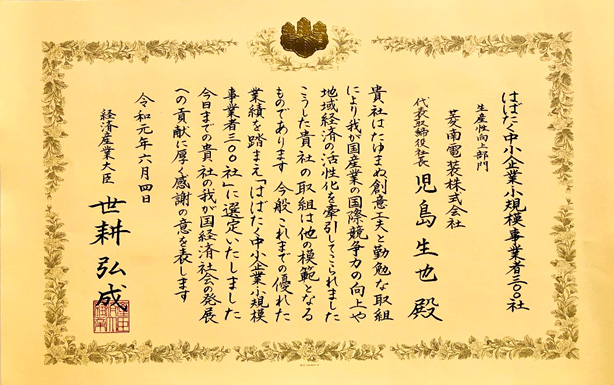 はばたく中小企業小規模事業者三〇〇社
生産性向上部門
菱南電装株式会社
代表取締役社長 児島生也 殿
貴社はたゆまぬ創意工夫と勤勉な取組
により我が国産業の国際競争力の向上や
地域経済の活性化を牽引してこられました
こうした貴社の取組は他の模範となる
ものであります 今般これまでの優れた
業績を踏まえ「はばたく中小企業小規模
事業者三〇〇社」に選定いたしました
今日までの貴社の我が国経済社会の発展
への貢献に厚く感謝の意を表します
令和元年六月四日
経済産業大臣 世耕弘成